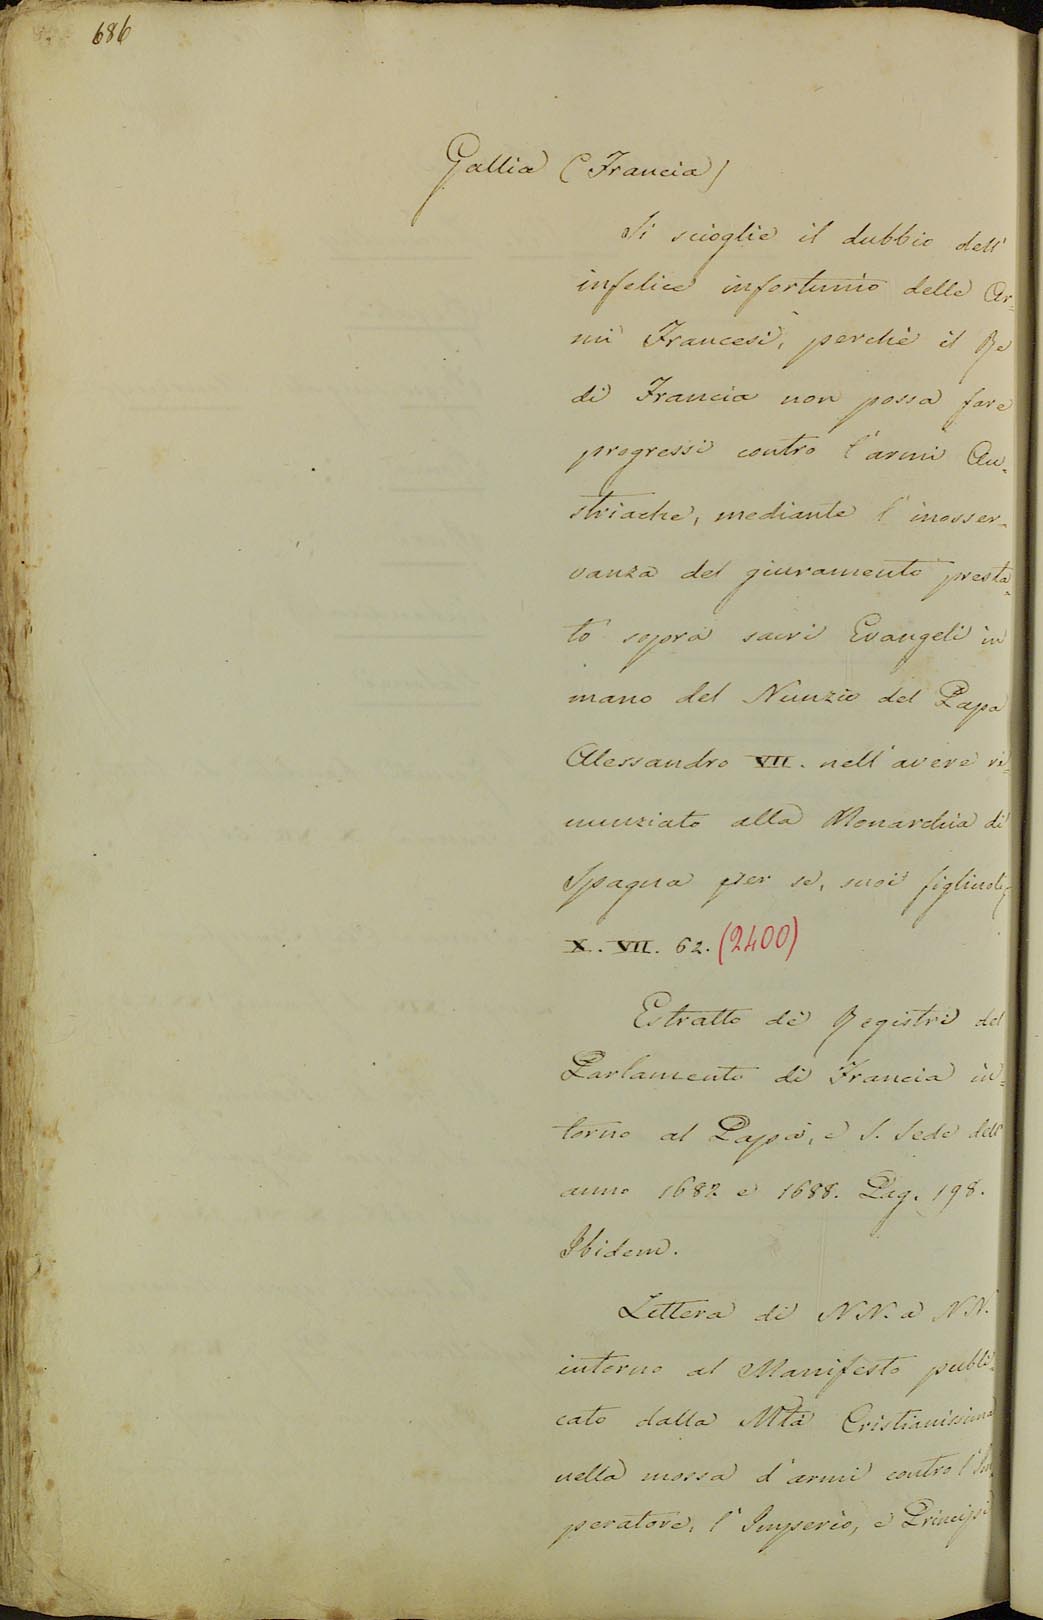 686
Gallia (Francia)
Si scioglie il dubbio dell'
infelice infortunio delle Ar-
mi Francesi, perchè il Re
di Francia non possa fare
progressi contro l'armi Au-
striache, mediante l'inosser-
vanza del giuramento presta-
to sopra sacri Evangeli in
mano del Nunzio del Papa
Alessandro VII. nell'avere ri-
nunziato alla Monarchia di
Spagna per se, suoi figliuoli
X. VII. 62. (2400)
Estratto de Registri del
Parlamento di Francia in-
torno al Papa, e S. Sede dell'
anno 1682 e 1688. Pag. 198.
Ibidem.
Lettera di N.N. a N.N.
intorno al Manifesto publi-
cato dalla Mtà Cristianissima
nella mossa d'armi contro l'Im-
peratore, l'Imperio, e Principi